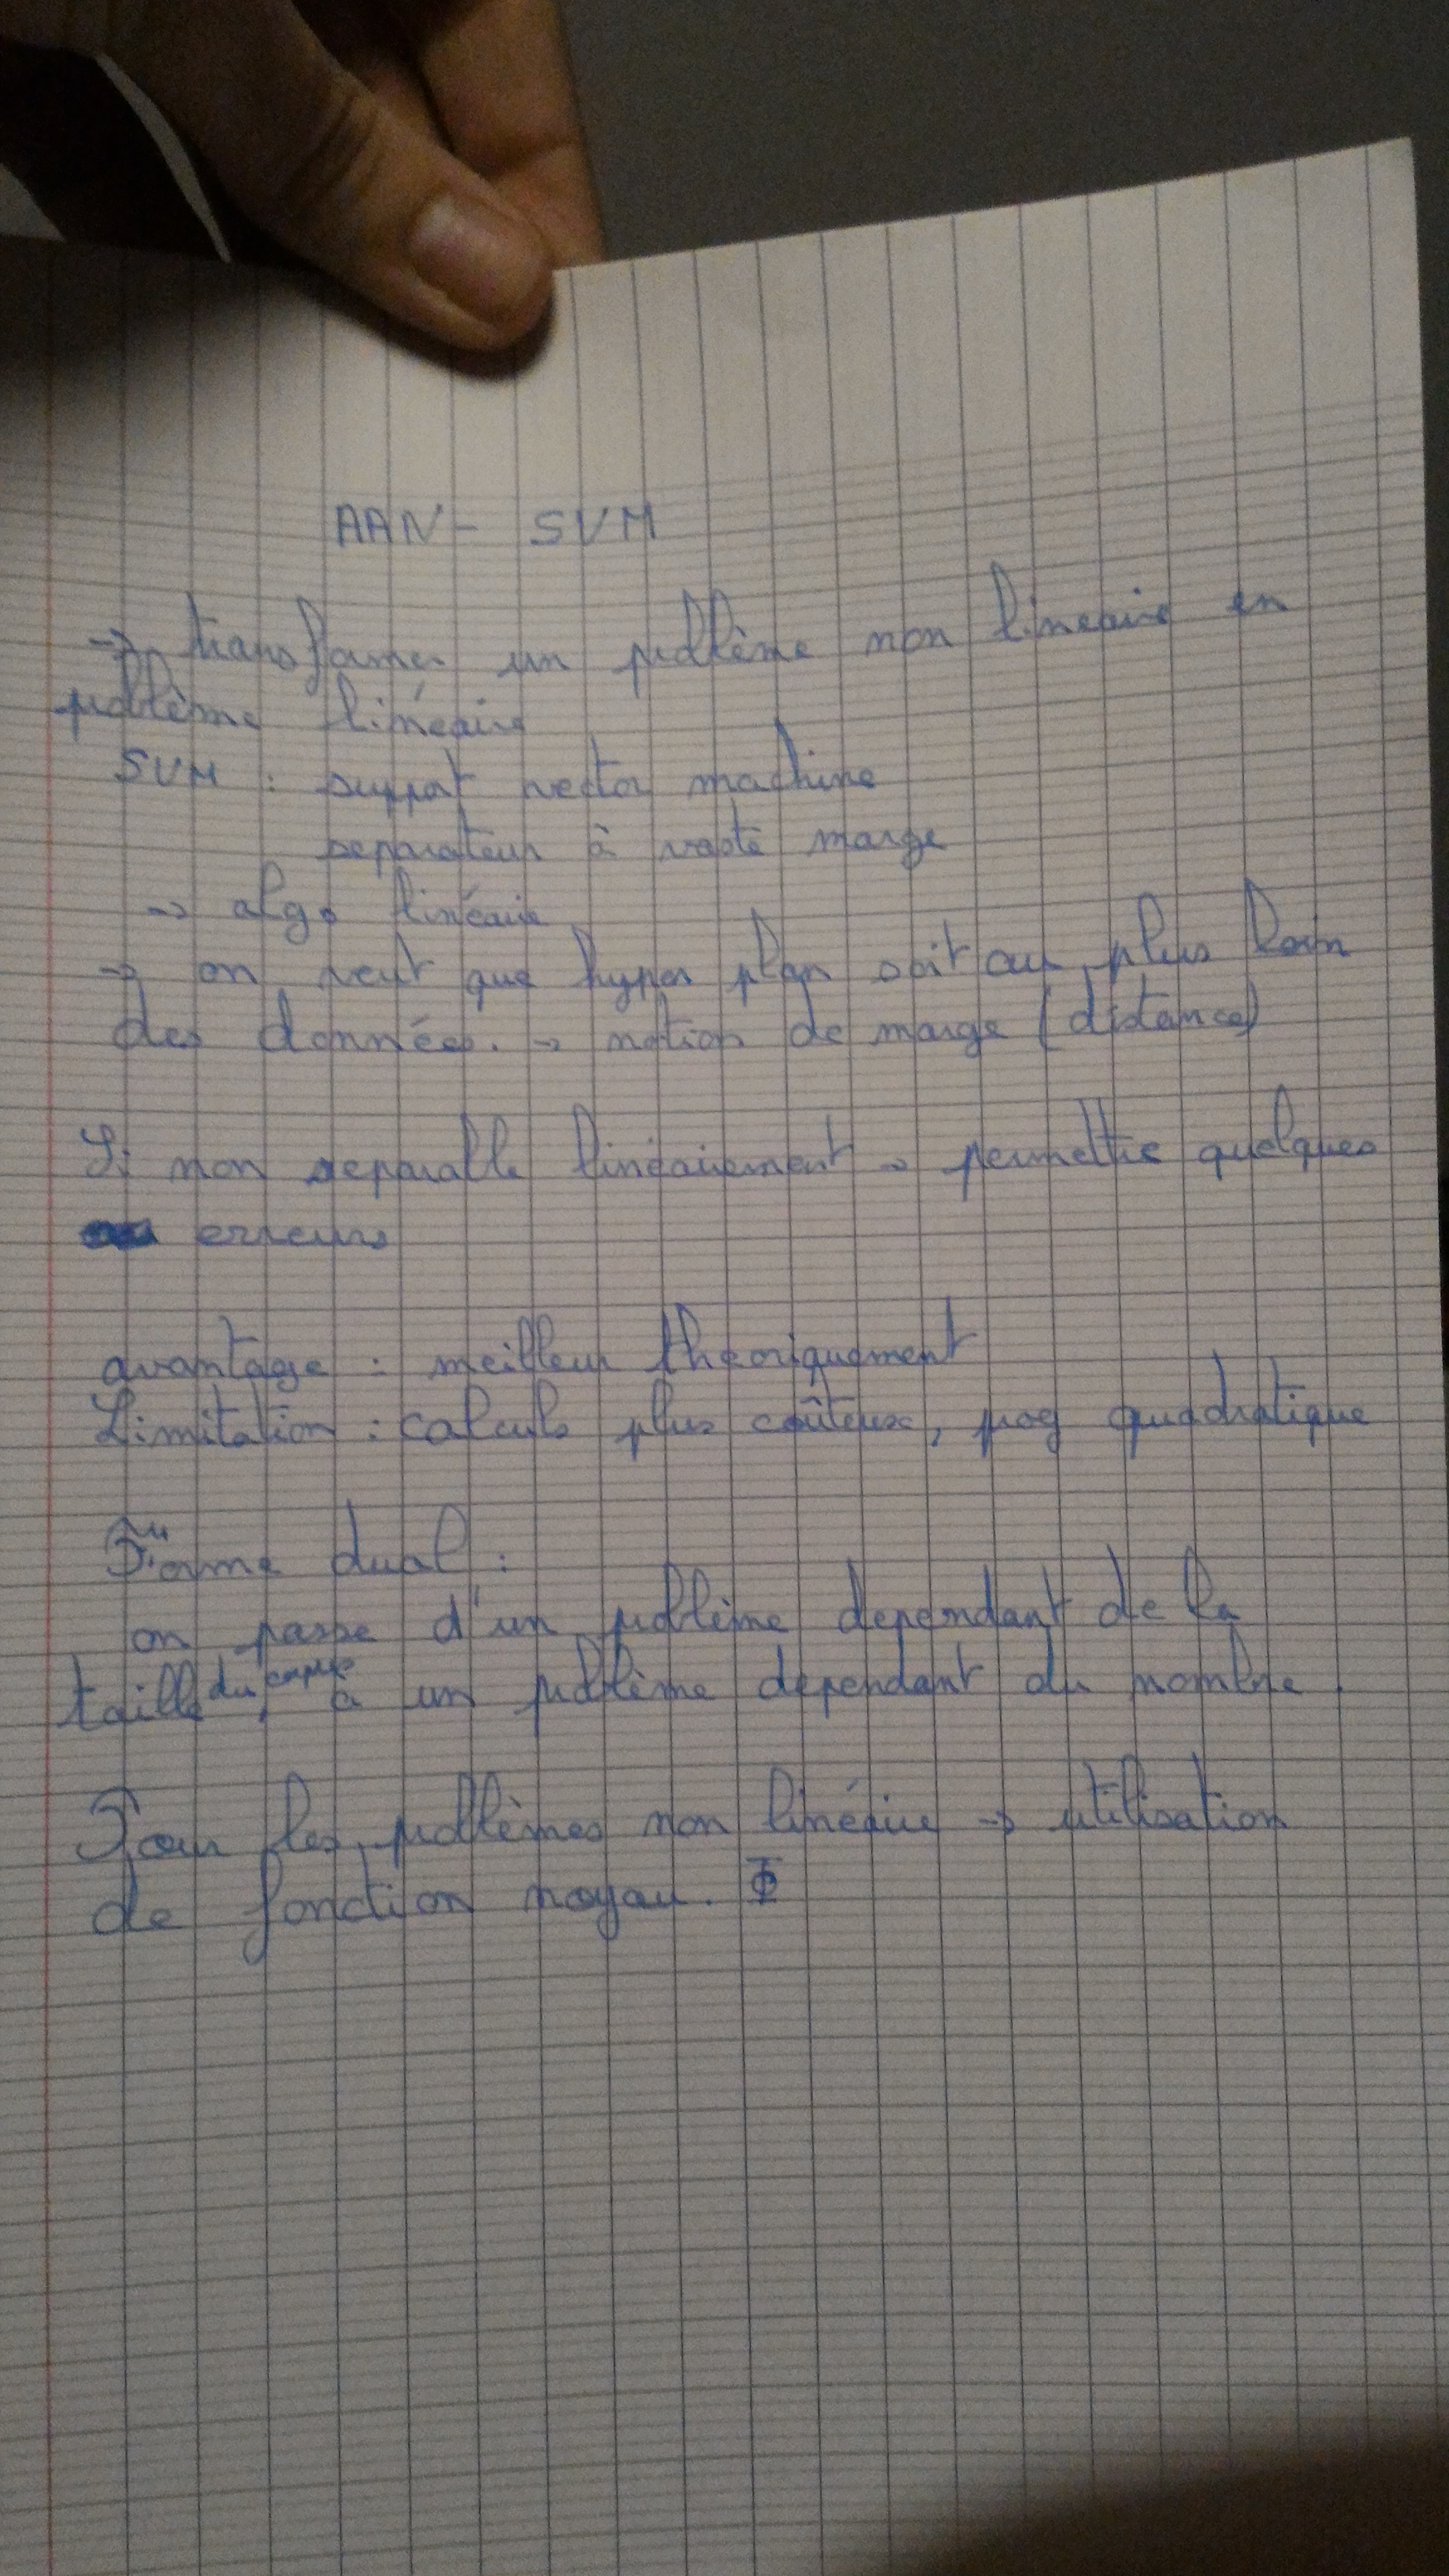 AAN - SVM
→ transformer un problème non lineaire en
problème linéaire
SVM : support vector machine
separateur à vaste marge
→ algo linéaire
→ on veut que hyper plan soit au plus loin
des données. → notion de marge (distance)
Si non separable linéairement → permettre quelques
erreurs
avantage : meilleur théoriquement
Limitation : calculs plus coûteux, prog quadratique
Forme dual :
on passe d'un problème dependant de la
taille du à un problème dependant du nombre
Pour les problèmes non linéaire → utilisation
de fonction noyau. Φ